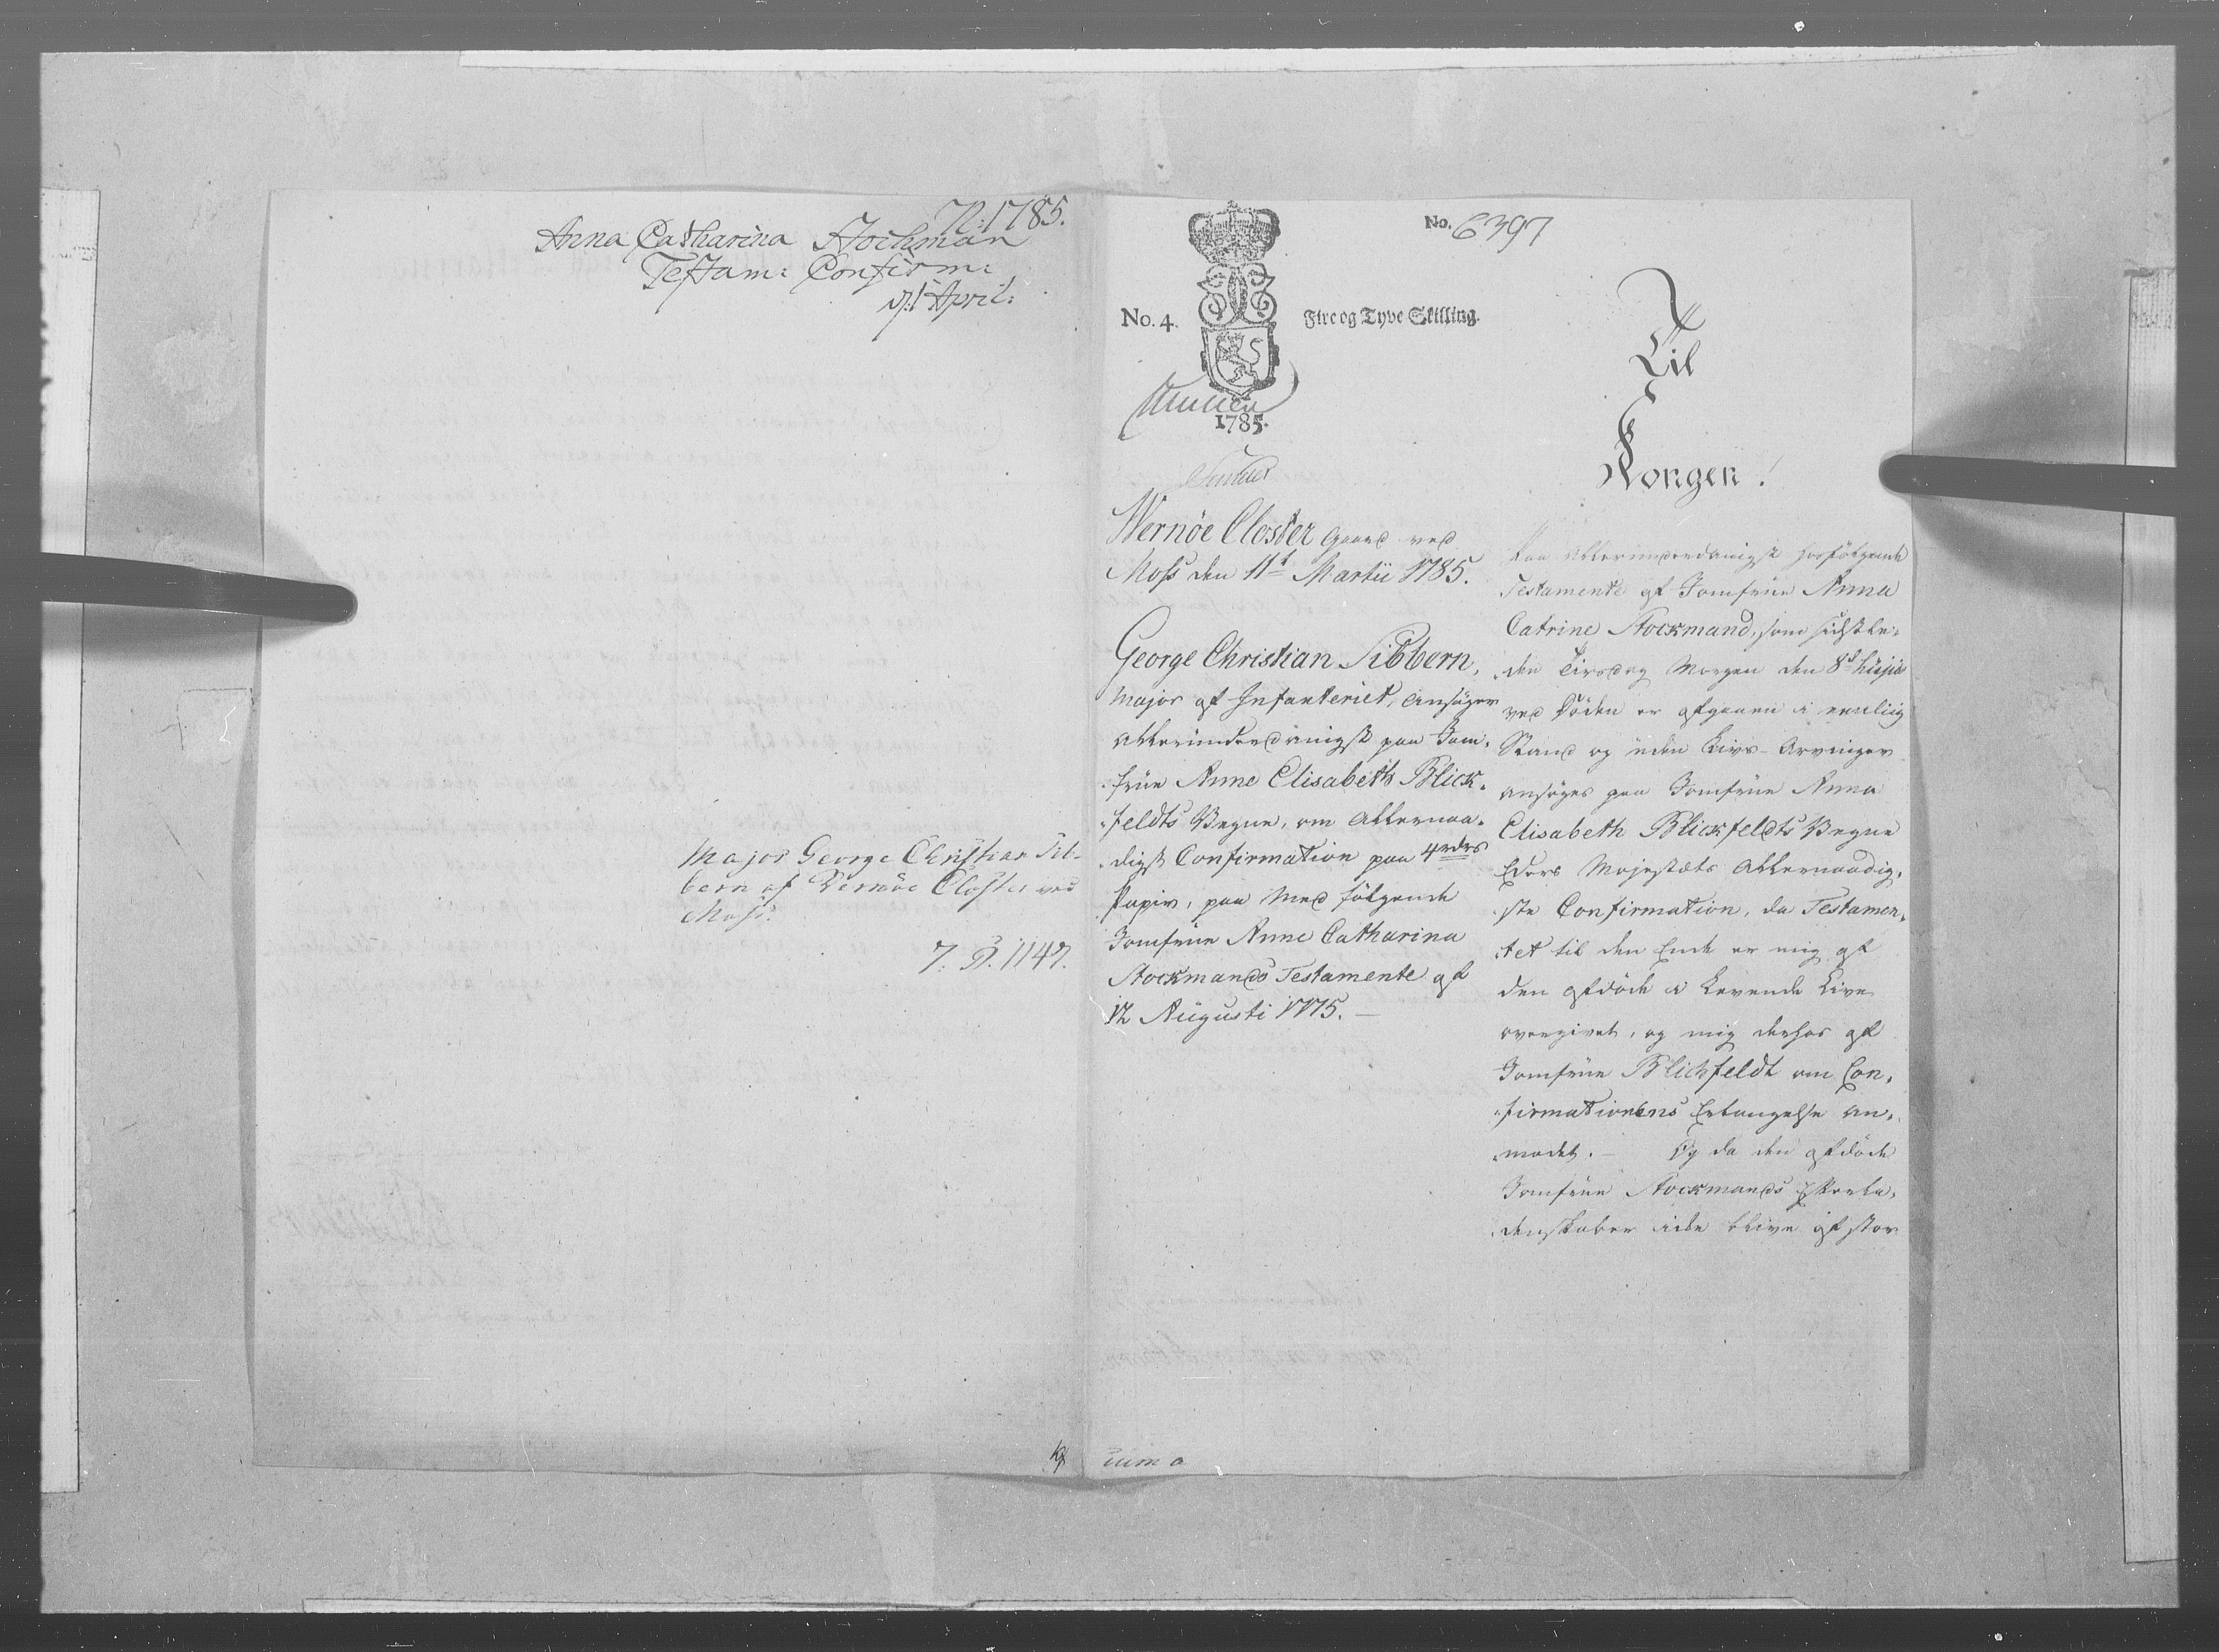 N: 1785.
Anna Catharina Stockman
Testam: Confirm:
d: 1 April:
Major George Christian Sib-
bern af Vernöe Closter ved
Moss.
7. B. 1147.
No. 6397
No. 4. Fire og Tyve Skilling.
1785.
Wernöe Closter Gaard ved
Moss den 11t Martii 1785.
George Christian Sibbern,
Major af Infanteriet, ansöger
allerunderdanigst paa Jom-
frue Anne Elisabeth Blick-
feldts Vegne, om allernaa-
digst Confirmation paa 4rdrs
Papir, paa Med fölgende
Jomfrue Anne Catharina
Stockmands Testamente af
12 Augusti 1775.
Til
Kongen!
Paa allerunderdanigst hosfölgende
Testamente af Jomfrue Anna
Catrine Stockmand, som sidstle-
den Tirsdag Morgen den 8d hujus
ved Döden er afgaaen i eenlig
Stand og uden Livs-Arvinger
ansöges paa Jomfrue Anna
Elisabeth Blickfeldts Vegne
Eders Majestæts Allernaadig-
ste Confirmation, da Testamen-
tet til den Ende er mig af
den afdöde i Levende Live
overgivet, og mig derhos af
Jomfrue Blichfeldt om Con-
firmationens Erlangelse an-
modet. Og da den afdöde
Jomfrue Stockmands Efterla-
denskaber icke blive af stor